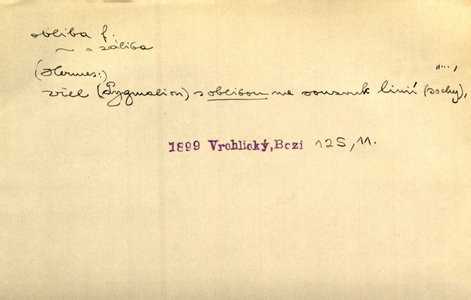 obliba f.
~ = záliba
(Hermes:) „...,
viděl (Pygmalion) s oblibou na souzvuk linií (sochy),
1899 Vrchlický, Bozi 125, 11.